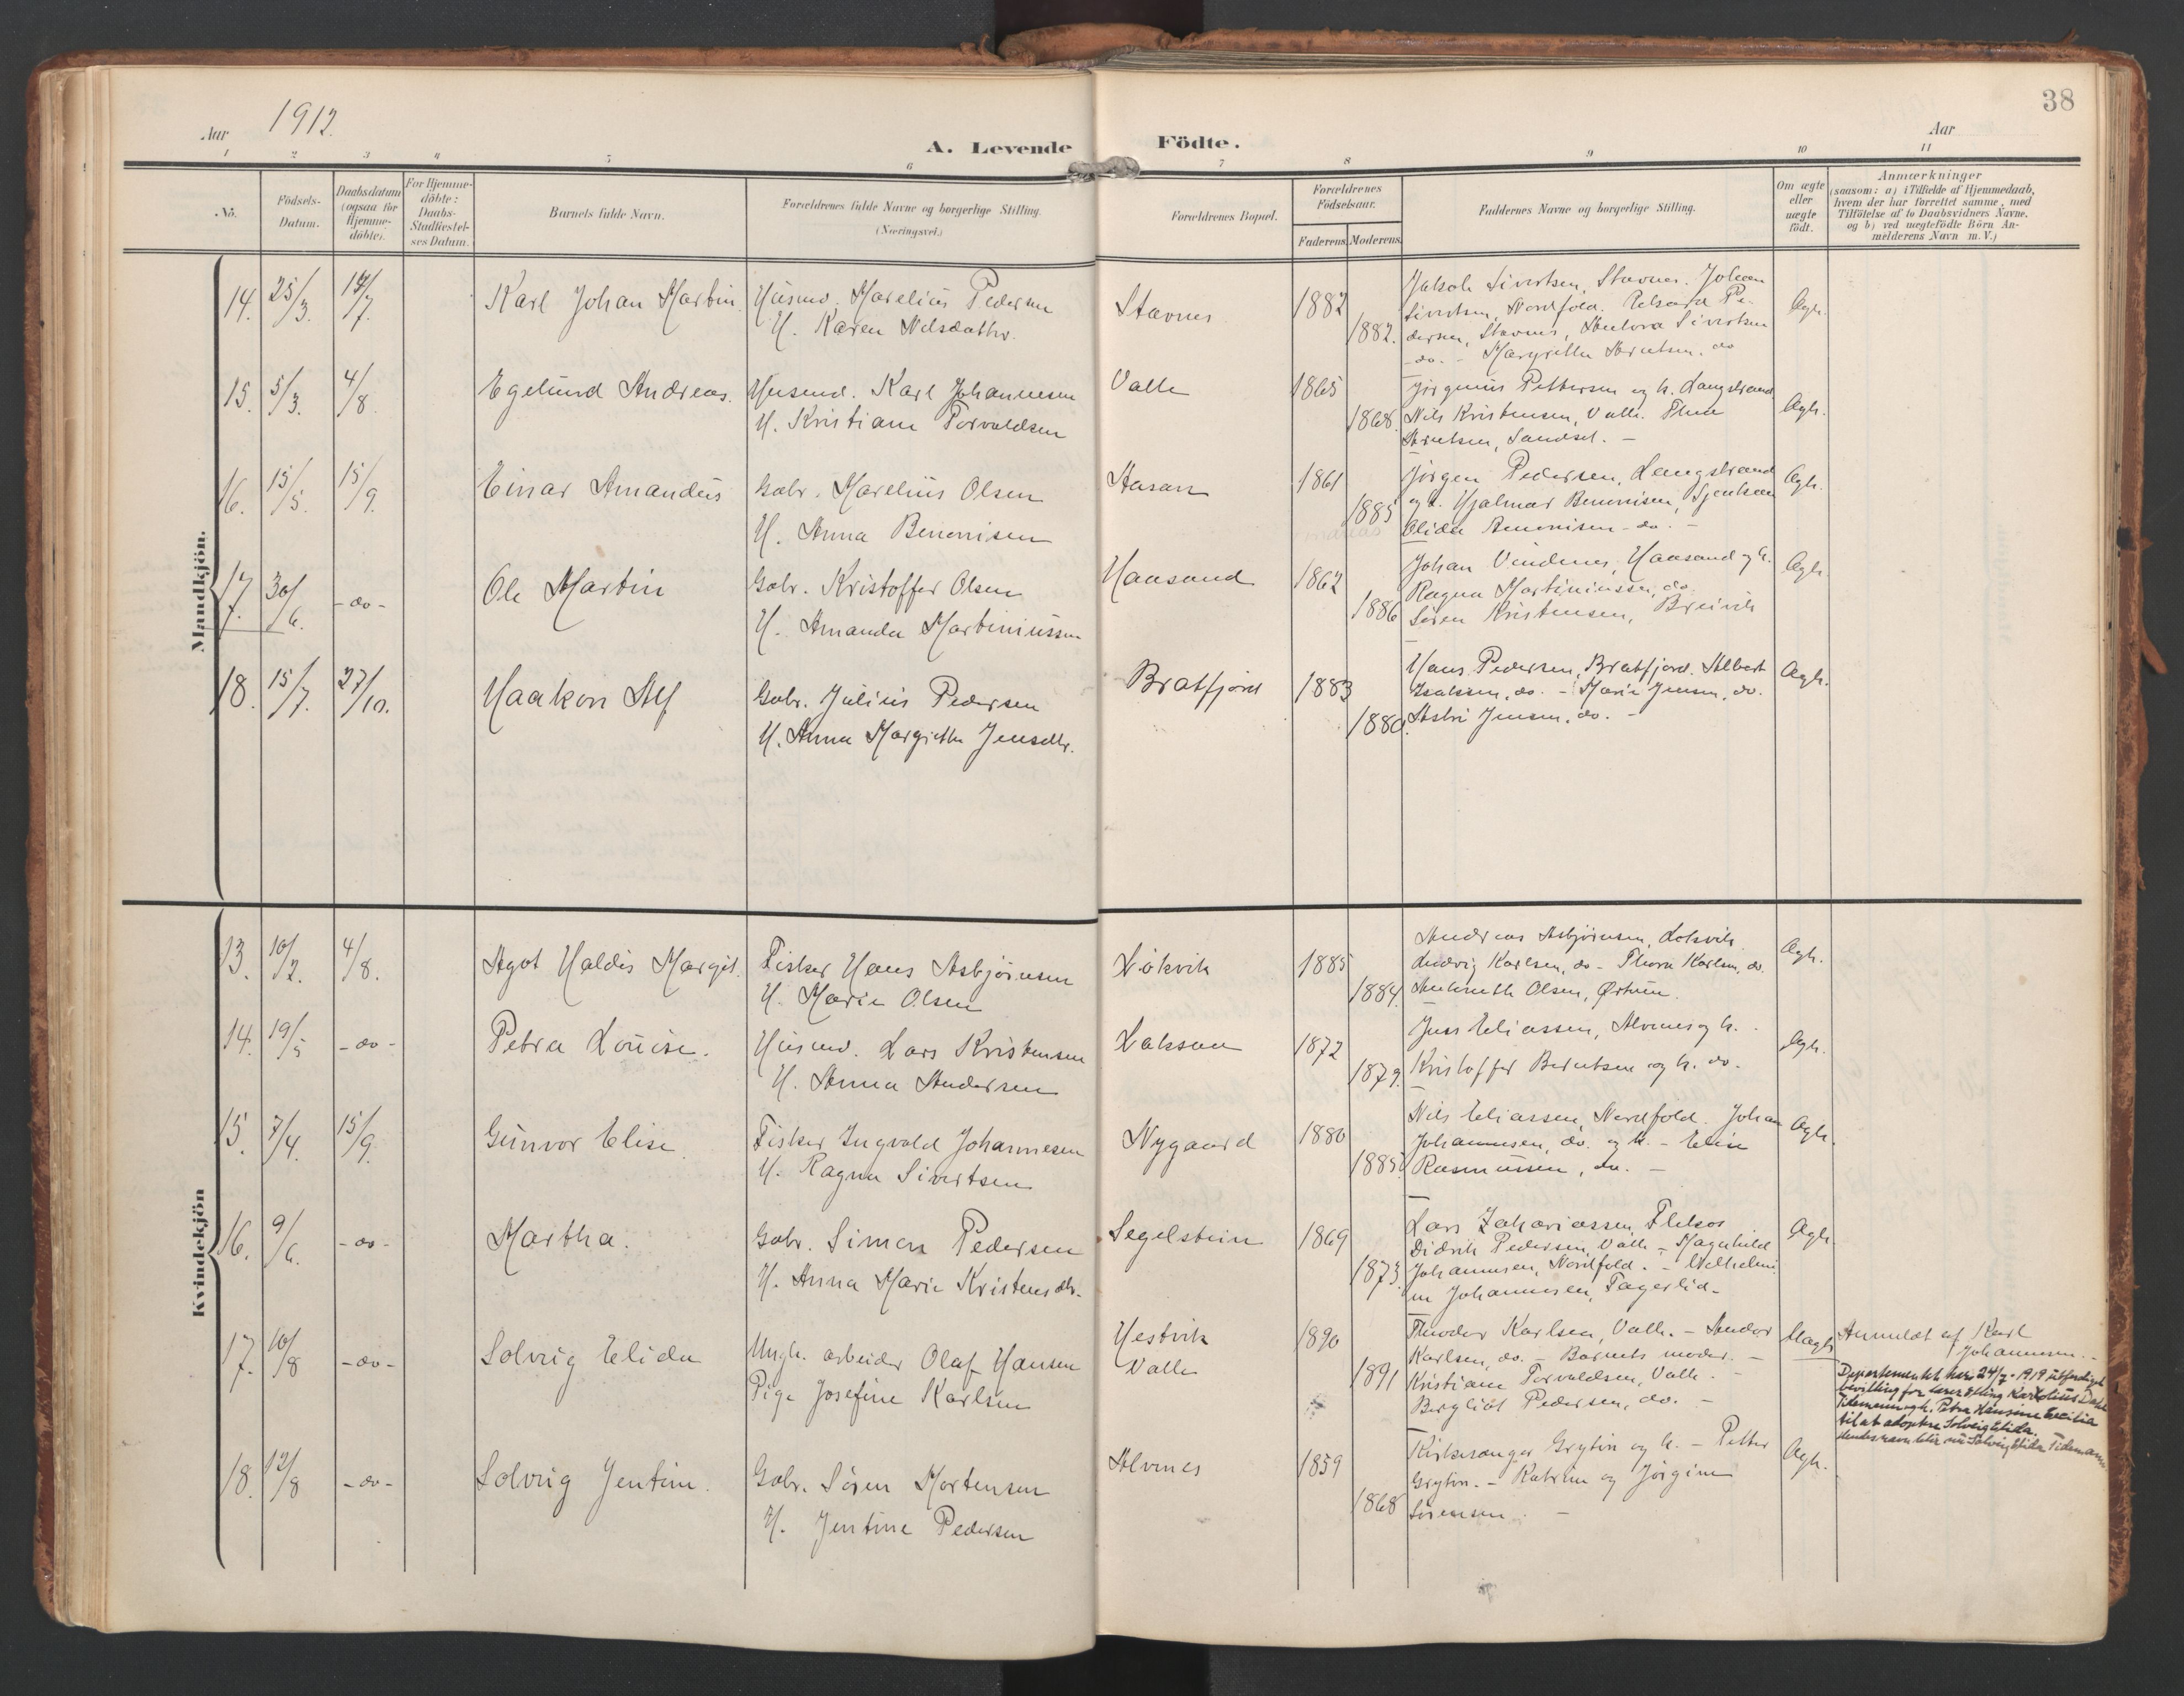 38
Aar 1912.
A. Levende Födte.
Aar
1 2 3 4 5 6 7 8 9 10 11
No.
Födsels-
Datum.
Daabsdatum
(ogsaa for
Hjemme-
döbte).
For Hjemme-
döbte:
Daabs-
Stadfæstel-
ses Datum.
Barnets fulde Navn.
Forældrenes fulde Navne og borgerlige Stilling.
(Næringsvei.)
Forældrenes Bopæl.
Forældrenes
Födselsaar.
Faderens. Moderens.
Faddernes Navne og borgerlige Stilling.
Om ægte
eller
uægte
födt.
Anmærkninger
(saasom: a) i Tilfælde af Hjemmedaab,
hvem der har forrettet samme, med
Tilföielse af to Daabsvidners Navne,
og b) ved uægtefödte Börn An-
melderens Navn m. V.)
Mandkjön.
14. 25/3. 14/7. Karl Johan Martin Husmd. Marelius Pedersen
H. Karen Nilsdatter.
Stavnes 1882
1882.
Jakob Sivertsen, Stavnes. Johan
Sivertsen, Nordfold. Pe-
dersen, Stavnes, Sivertsen
do. - Margrethe do
Ægte.
15. 5/3. 4/8. Egelund Andreas. Husmd. Karl Johannesen
H. Kristiane Torvaldsen
Valle 1865
1868.
Jørginus Pettersen og h. Langstrand
Nils Kristensen, Valle. Thea
Arntsen, Sandset. -
Ægte.
16. 15/5. 15/9. Einar Amandus Gabr. Marelius Olsen
H. Anna Benonisen
Aasan 1861
1885
Jörgen Pedersen, Langstrand
og h. Hjalmar Benonisen,
Olida Benonisen - do. -
Ægte.
17. 30/6. - do - Ole Martin Gabr. Kristoffer Olsen
H. Amanda Martiniussen
Haasand 1862
1886
Johan Vindenes, Haasand og h.
Ragna Martiniussen, do
Søren Kristensen, Breivik
Ægte.
18. 15/7. 27/10. Haakon Alf Gabr. Julius Pedersen
H. Anna Margrethe Jensdtr.
Bratfjord 1883
1880.
Hans Pedersen, Bratfjord. Albert
Isaksen, do. - Marie Jensen, do.
Astri Jensen, do. -
Ægte.
Kvindekjön
13. 10/2. 4/8. Agot Haldis Margit. Fisker Hans Asbjørnsen
H. Marie Olsen
Løkvik 1885
1884.
Andreas Asbjørnsen, Løkvik
Ludvig Karlsen, do - Thora Karlsen, do.
Olsen,
Ægte.
14. 19/5 - do - Petra Louise. Husmd. Lars Kristensen
H. Anna Andersen
Laksaa 1872
1879.
Jens Eliassen, Alvenes og h.
Kristoffer Berntsen og h. do.
Ægte.
15. 7/4. 15/9. Gunvor Elise. Fisker Ingvald Johannesen
H. Ragna Sivertsen
Nygaard 1880
1885
Nils Eliassen, Nordfold. Johan
Johannesen, do. og h. - Elise
Rasmussen, do. -
Ægte.
16. 9/6. - do - Martha. Gabr. Simon Pedersen
H. Anna Marie Kristensdtr.
Segelstein 1869
1873.
Lars Zakariassen,
Didrik Pedersen, Valle - Magnhild
Johannesen, Nordfold. - Vilhelmi-
ne Johannesen, Fagerlid -
Ægte
17. 10/8 - do - Solveig Elida Ungk. arbeider Olaf Hansen
Pige Josefine Karlsen
Hestvik
Valle
1890
1891
Theodor Karlsen, Valle. - Andor
Karlsen, do. - Barnets moder. -
Kristiane Torvaldsen, Valle. -
Bergliot Pedersen, do. -
Uægte
Anmeldt af Karl
Johannesen. -
Departementet har 24/7 - 1919 utferdiget
bevilling for lærer Elling Karolius Dahl
Tidemann og h. Petra Hansine Cecilia
til at adoptere Solveig Elida.
Hendes navn blir nu Solveig Elida Tidemann
18. 12/8 - do - Solveig Jentine. Gabr. Søren Mortensen
H. Jentine Pedersen
Alvenes 1859
1868
Kirkesanger Grytør og h. - Petter
Grytør. - Katrine og Jørgine
Sørensen. -
Ægte.